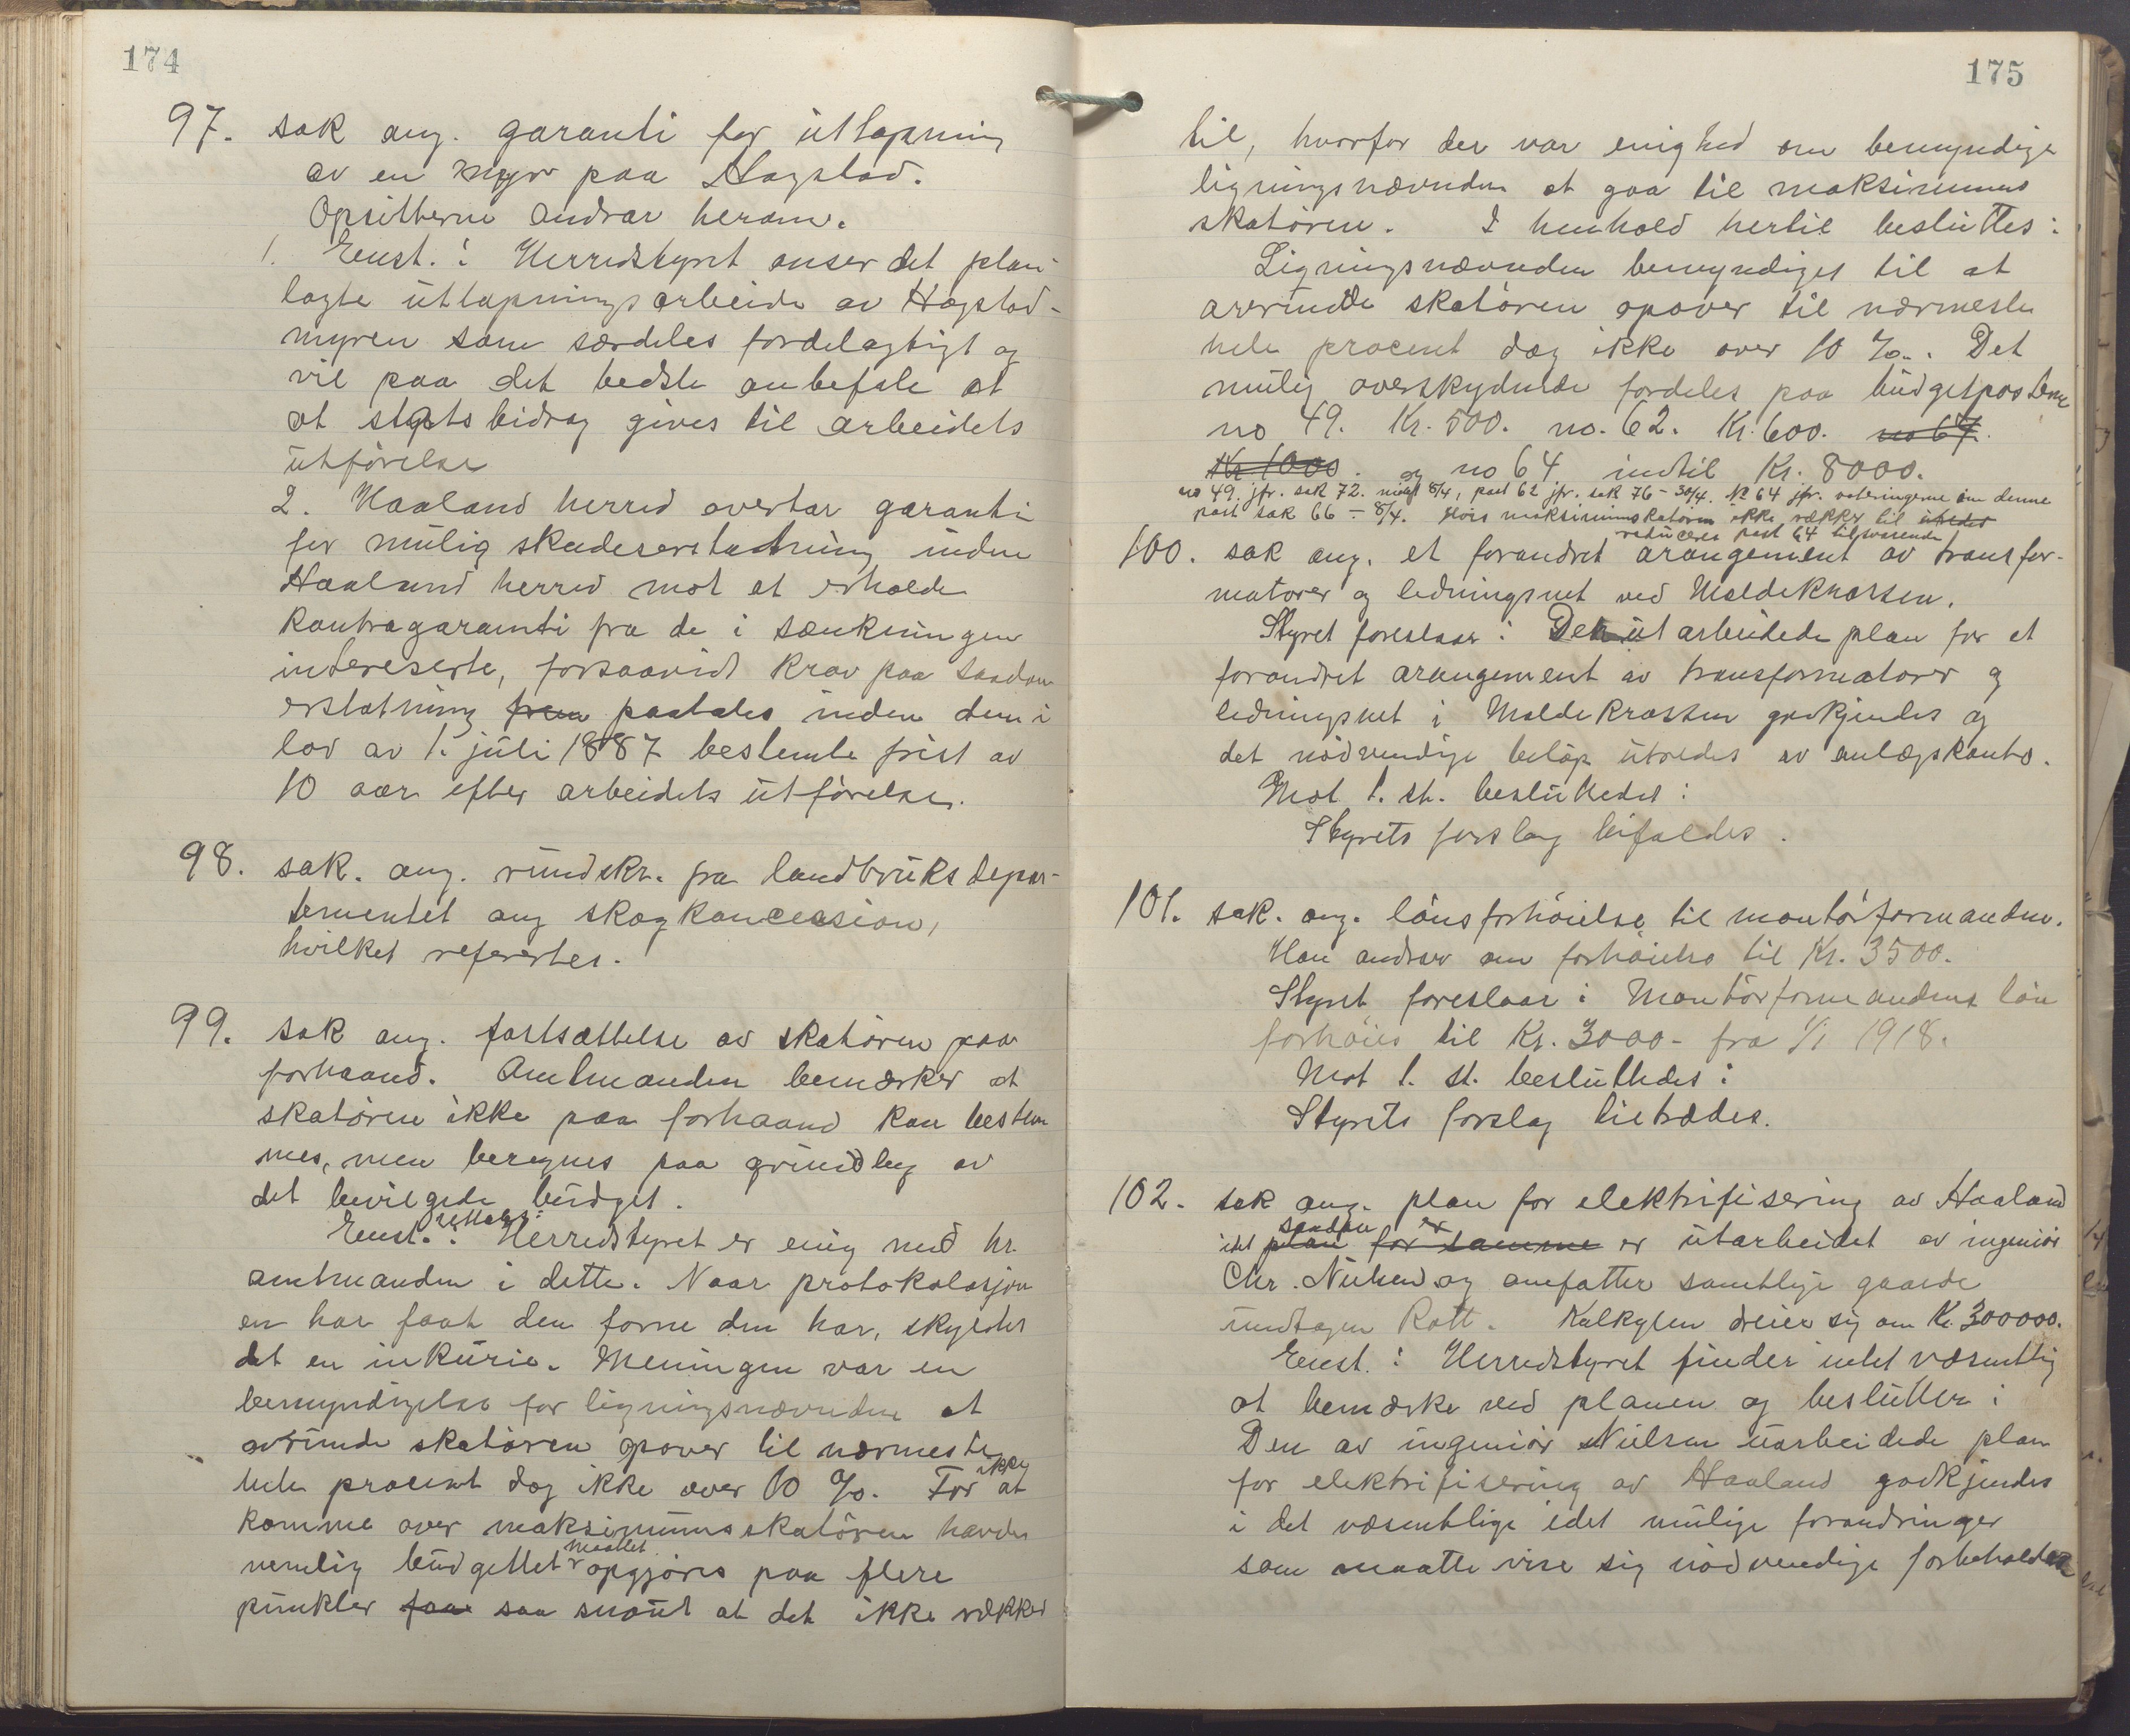 174
97. sak ang. garanti for uttapning
av en myr paa Hagstad.
Opsitterne andrar herom.
1. Enst.: Herredstyret anser det plan-
lagte uttapningsarbeide av Hagstad-
myren som særdeles fordelagtigt og
vil paa det bedste anbefale at
at statsbidrag gives til arbeidets
utførelse
2. Haaland herred overtar garanti
for mulig skadeserstatning inden
Haaland herred mot at erholde
kontragaranti fra de i sænkningen
intereserte, forsaavidt krav paa saadan
erstatning frem paatales inden den i
lov av 1. juli 1887 bestemte frist av
10 aar efter arbeidets utførelse.
98. sak. ang. rundskr. fra landbruksdepar-
tementet ang skogkoncession,
hvilket refertes.
99. sak ang. fastsættelse av skatøren paa
forhaand. Amtmanden bemerker at
skatøren ikke paa forhaand kan bestem
mes, men beregnes paa grundlag av
det bevilgede budget.
Enst. : Herredstyret er enig med hr.
amtmanden i dette. Naar protokolasjon
en har faat den forme den har, skyldes
det en inkurie. Meningen var en
bemyndigelse for ligningsnævnden at
avrunde skatøren opover til nærmeste
hele procent dog ikke over 10 %. For ikke at
komme over maksimumsskatøren havde
nemlig budgettet maattet opgjøres paa flere
punkter faa saa snaut at det ikke rækker
175
til, hvorfor der var enighed om bemyndige
ligningsnævnden at gaa til maksimums
skatøren. I henhold hertil besluttes:
Ligningsnævnden bemyndiges til at
avrunde skatøren opover til nærmeste
hele procent dog ikke over 10 %. Det
mulig overskydende fordeles paa budgetpostene
no 49. Kr. 500. no. 62. Kr. 600. no 67.
Kr 1000. og no 64 indtil Kr. 8000.
no 49. jfr. sak 72. møt 8/4, post 62 jfr. sak 76 - 30/4. No 64 jfr. voteringerne om denne
post sak 66 - 8/4. Hvis maksimumskatøren ikke rækker til utredes
reduceres post 64 tilsvarende
100. sak ang. et forandret arangement av transfor-
matorer og ledningsnet ved Moldekrossen.
Styret foreslaar: Den utarbeidede plan for et
forandret arangement av transformatorer og
ledningsnet i Moldekrossen godkjendes og
det nødvendige beløp utredes av anlægskonto.
Mot 1. st. beslutledes:
Styrets forslag bifaldes.
101. sak. ang. lønsforhøielse til montørformanden.
Han andrar om forhøielse til Kr. 3500.
Styret foreslaar: Montørformandens løn
forhøies til Kr. 3000- fra 1/1 1918.
Mot 1. st. besluttedes:
Styrets forslag tiltrædes.
102. sak ang. plan for elektrifisering av Haaland
idet plan saadan for samme er er utarbeidet av ingeniør
Chr. Nielsen og omfatter samtlige gaarde
undtagen Rott. Kalkylen dreier sig om Kr. 300000.
Enst.: Herredstyret finder intet væsentlig
at bemerke ved planen og beslutter:
Den av ingeniør Nielsen uarbeidede plan
for elektrifisering av Haaland godkjendes
i det væsentlige idet mulige forandringer
som maatte vise sig nødvendige forbeholdes